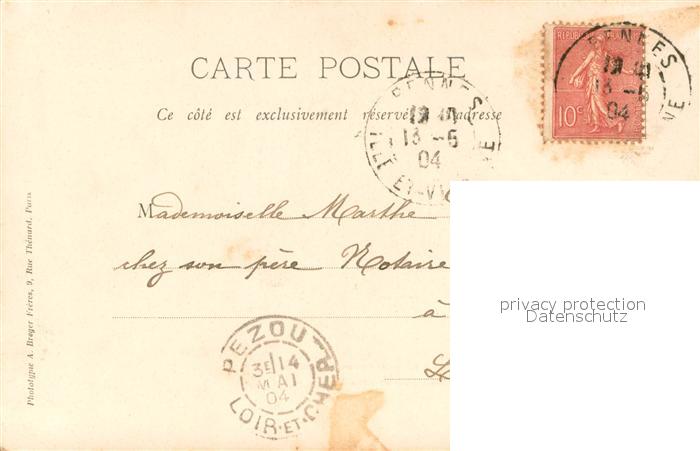 CARTE POSTALE
Ce côté est exclusivement réservé à l'adresse
RENNES
13 -5
04
ILLE-ET-VILAINE
RENNES
13 -5
04
NE
REPUBLIQUE
10c
Mademoiselle Marthe
chez son père Notaire
à
privacy protection
Datenschutz
PEZOU
3E 14
MAI
04
LOIR-ET-CHER
Phototypie A. Breger Frères, 9, Rue Thénard, Paris